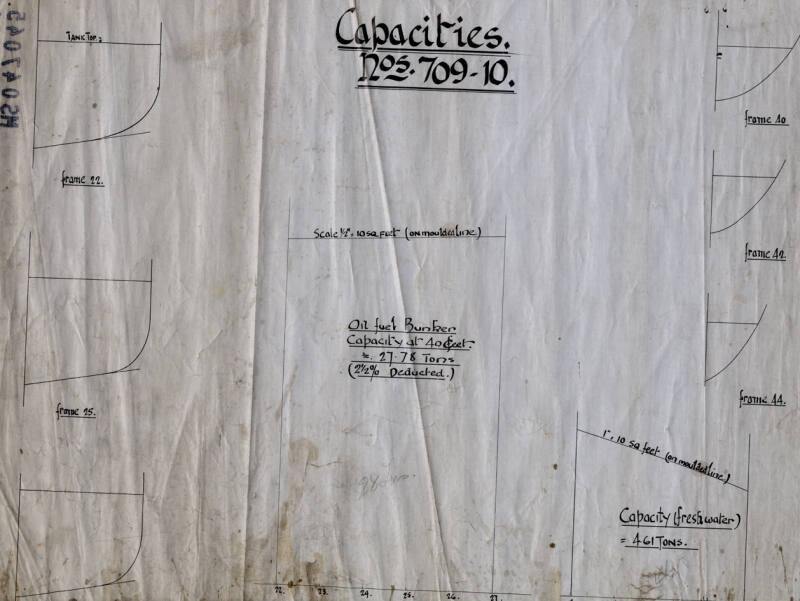 Capacities.
Nos. 709-10.
TANK TOP.
frame 22.
frame 25.
Scale ½" = 10 sq feet (on moulded line)
Oil fuel Bunker
Capacity at 40 feet
= 27.78 Tons
(2½% Deducted.)
22. 23. 24. 25. 26. 27.
frame 40
frame 42
frame 44.
1" = 10 sq feet (on moulded line)
Capacity (fresh water)
= 4.61 Tons.